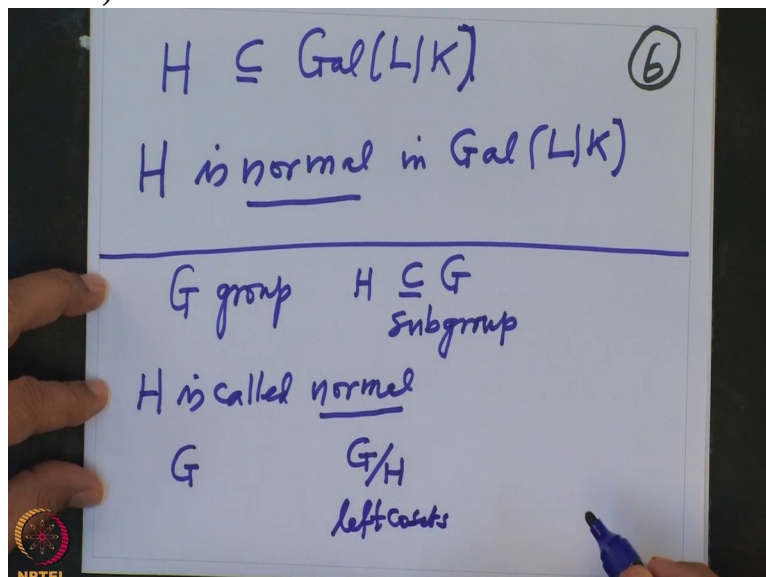 H ⊆ Gal(L|K)
6
H is normal in Gal(L|K)
G group H ⊆ G
subgroup
H is called normal
G G/H
left cosets
NPTEL